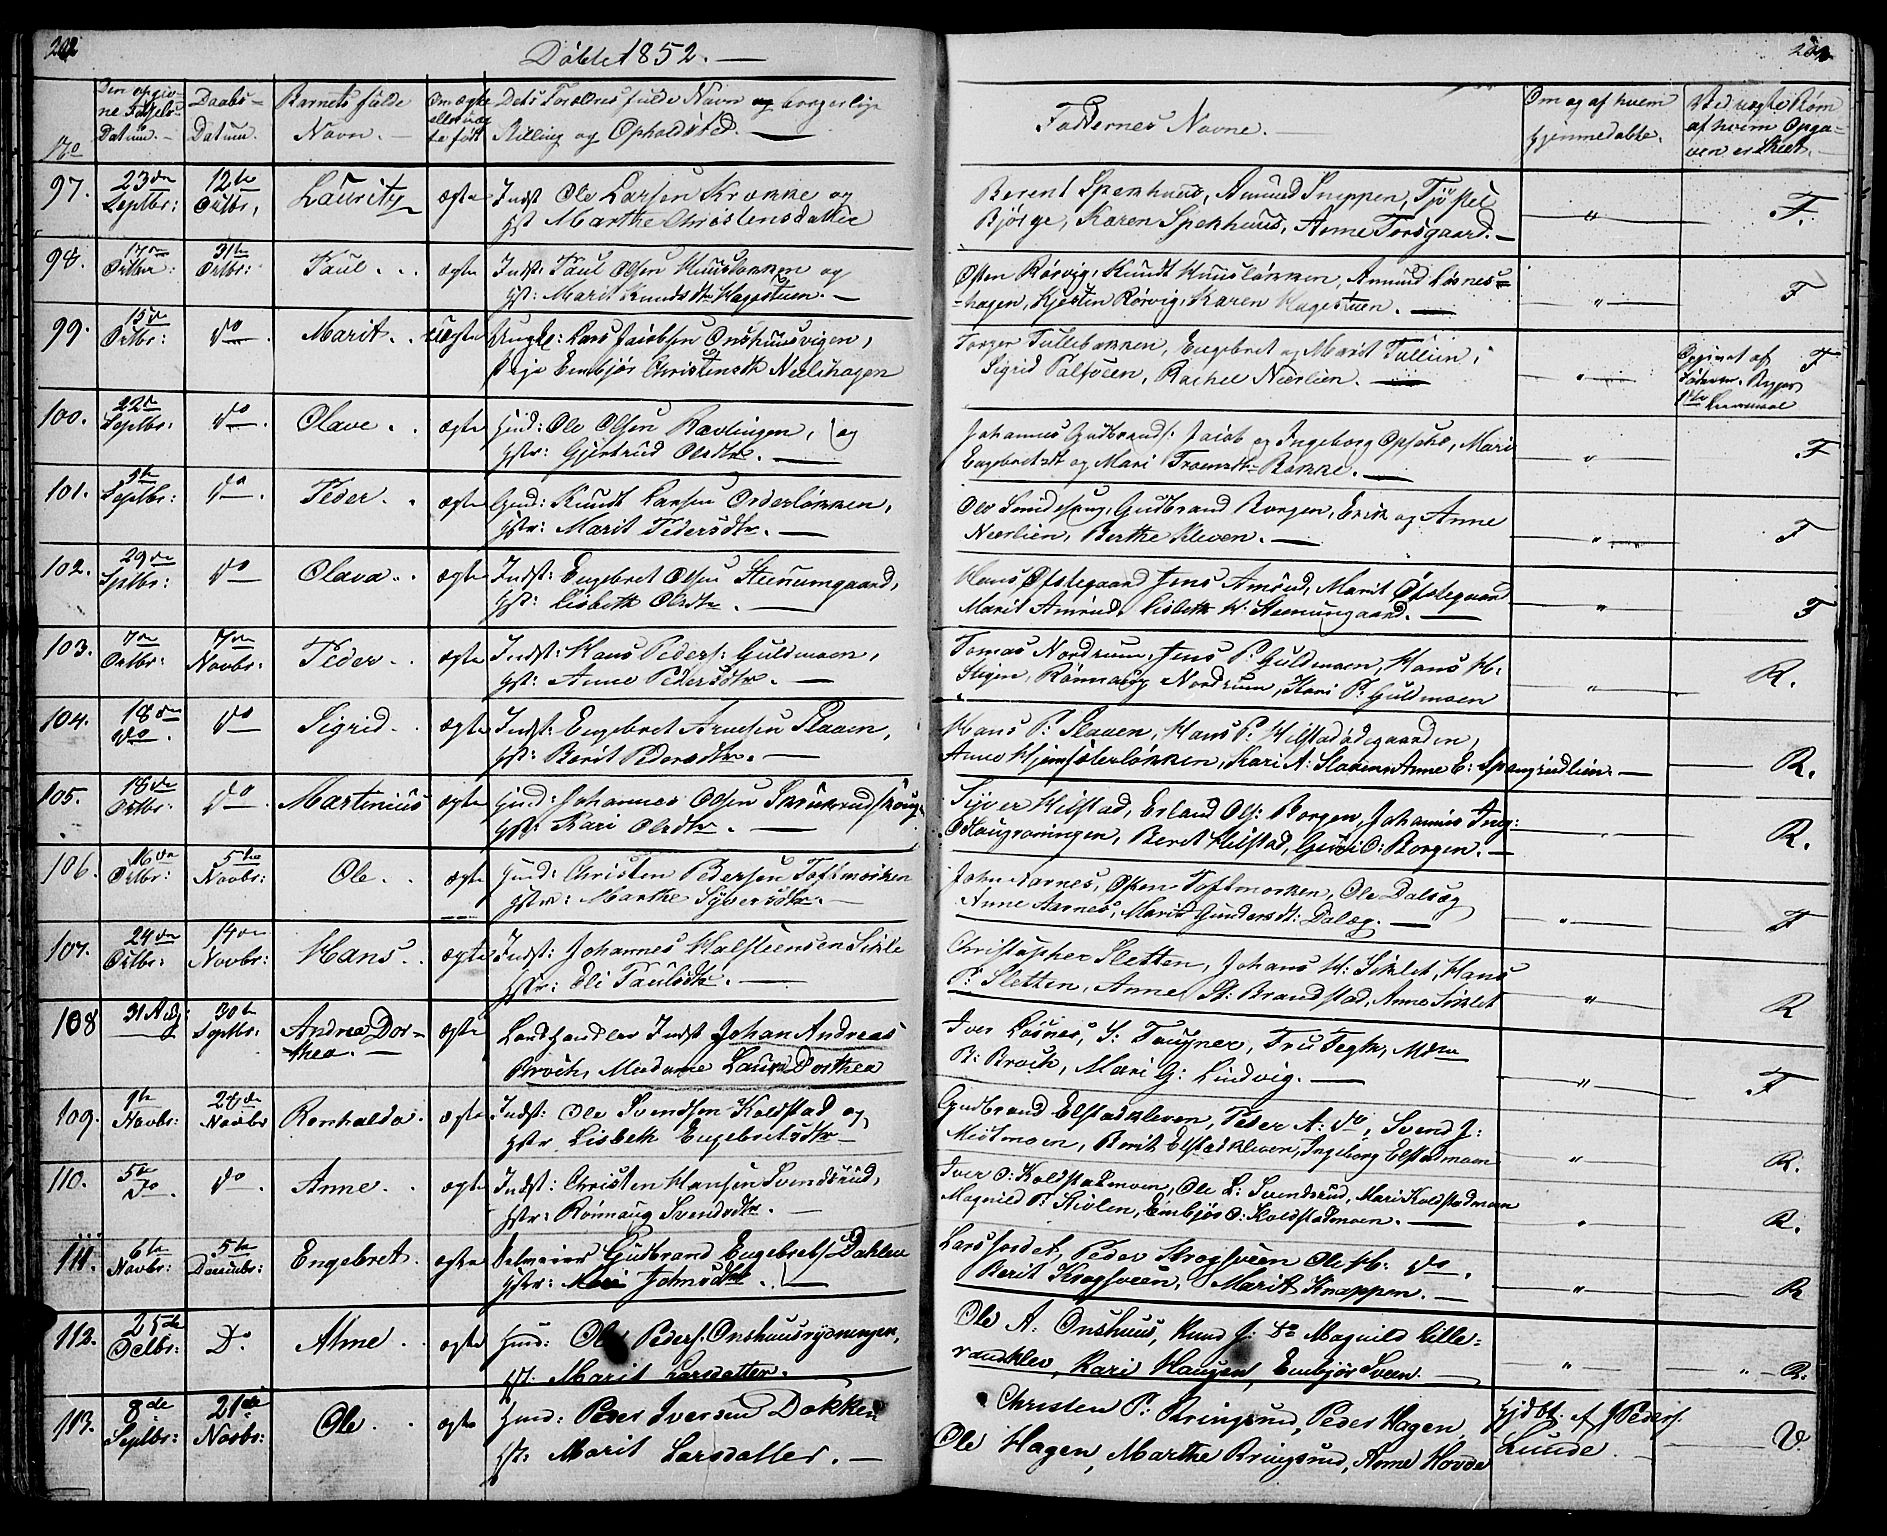 202
Döbte 1852. —
202
No
Den opgiv-
ne Födsels
Datum. -
Daabs-
Datum.
Barnets fulde
Navn. -
Om ægte
eller uæg
te født
Dets Forældres fulde Navn og borgerlige
Stilling og Opholdsted. —
Faddernes Navne. —
Om og af hvem
hjemmedøbte. -
Ved uægte Børn
af hvem Opga-
ven er skeet. -
97. 23de Septbr: 12te Octbr. Lauritz ægte Indst Ole Larsen Krække og
Hst Marthe Christensdatter
Berent Spekhuus, Amund Snippen, Tjöstel
Björge, Karen Spekhuus, Anne Forsgaard. — " F.
98. 17de Octbr: 31te Octbr: Paul . . ægte Indst: Paul Olsen Knuslökken og
Hst: Marit Knudsdtr Hagestuen. —
Osten Rörvig, Knudt Knuslökken, Amund Lösnes=
=hagen, Kjersten Rörvig, Karen Hagestuen. — " F
99. 15de Octbr: do Marit . . uægte Ungk: Lars Jacobsen Onshuusvigen,
Pige Embjör Christensdtr Neelshagen
Torger Tullebakken, Engebret og Marit Tullien,
Sigrid Palsveen, Rachel Nærlien. — " Opgivet af F
100. 22de Septbr: do Olave . . ægte Huusd: Ole Olsen Rævlingen, og
Hstr: Gjertrud Olsdtr. —
Johannes Gudbrands: Jacob og Ingeborg Opsahl, Mari
Engebretsdt og Mari Tronsdtr Bakke. — " F
101. 5te Septbr: do Peder . ægte Huusd: Knudt Larsen Onderlökken,
Hstr: Marit Pedersdtr. —
Ole Smidesang, Gudbrand Borgen, Erik og Anne
Nærlien, Berthe Kleven. — " F
102. 29de Septbr: do Olava . . ægte Indst: Engebret Olsen Steenumgaard,
Hst: Lisbeth Olsdtr. —
Hans Öfstegaard Jens Amrud, Marit Öfstegaard
Marit Amrud, Lisbeth H: Steenumgaard. — " F
103. 7de Octbr: 7de Novbr: Peder . ægte Indst: Hans Peders: Guldmoen,
Hst: Anne Pedersdtr. —
Tomas Nordrum, Jens P: Guldmoen, Hans H:
Stigen, Rönnaug Nordrum, Kari P: Guldmoen " R.
104. 18de do. do Sigrid . ægte Indst: Engebret Arnesen Slaaen,
Hst: Berit Pedersdtr. —
Hans P: Slaaen, Hans P: Hilstadödegaarden,
Anne Hjemsöterlökken, Kari A: Slaaen, Anne E: Spangrudlien. — R.
105. 18de Octbr: do Martinius ægte Huusd: Johannes Olsen Skrukrudshaug
Hst: Kari Olsdtr. —
Syver Hilstad, Erland Ols: Borgen, Johannes Ing:
Haugroningen, Beret Hilstad, Guri O: Borgen. — " R.
106. 16de Octbr: 5te Novbr: Ole . . ægte Huusd: Christen Pedersen Toftmoeken
Hstr: Marthe Syversdtr. —
John Aarnes, Osten Toftmorken, Ole Dalsæg
Anne Aarnes, Marit Gundersdt: Dalæg. — " F
107. 24de Octbr: 14de Novbr: Hans . . ægte Indst: Johannes Halsteensen Sikle
Hstr: Eli Paulsdtr. —
Christopher Sletten, Johans H: Siklet, Hans
P: Sletten, Anne St: Brandstad, Anne Siklet " R
108 31 Aug: 30te Septbr: Andrea Dor-
thea. — ægte Landhandler Indst Johan Andreas
Broch, Madame Laura Dorthea
Iver Lösnes, S: Faugner, Fru Tegk, Mdm
B: Broch, Mari G: Lindvig. — " F
109. 1te Novbr: 28de Novbr Renhalda . ægte Indst: Ole Svendsen Koldstad og
Hstr Lisbeth Engebretsdtr —
Gudbrand Elstadkleven, Peder A: do, Svend J:
Midtmoen, Berit Elstadkleven, Ingeborg Elstadmoen " R.
110. 5te do. do. Anne . ægte Indst: Christen Hansen Svendsrud,
Hstr: Rönnaug Svendsdtr. —
Iver O: Koldstadmoen, Ole L: Svendsrud, Mari Koldstadmoen
Magnild P: Kiölen, Embjör O: Koldstadmoen. — " R.
111. 6te Novbr: 5te Decembr: Engebret . ægte Selveier Gudbrand Engebrets: Dahlen
Hstr: Mari Johnsdtr. —
Lars Jordet, Peder Krogsveen Ole H: do.
Berit Krogsveen, Marit Knappen. — " R
112. 25de Octbr: Do Anne . ægte Huusd: Ole Peders. Onshuusrydningen,
Hst. Marit Larsdatter.
Ole A: Onshuus, Knud J: do Magnild Lille-
randklev, Kari Haugen, Embjör Sveen. — " " R.
113. 8de Septbr: 21de Novbr: Ole . ægte Huusd: Peder Iversen Dokken
Hst: Marit Larsdatter. —
Christen P: Kringsrud, Peder Hagen,
Ole Hagen, Marthe Kringsrud, Anne Hovde
Hjdbt. af J Peders.
Lunde. V.